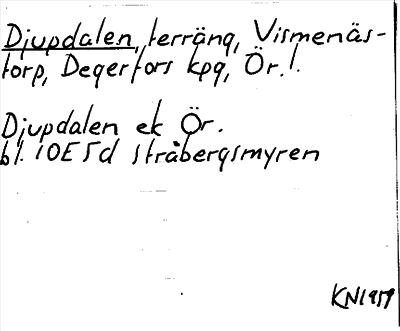 Djupdalen, terräng, Vismenäs-
torp, Degerfors kpg, Ör. l.
Djupdalen ek Ör.
bl. 10E5d Stråbergsmyren
KN1959